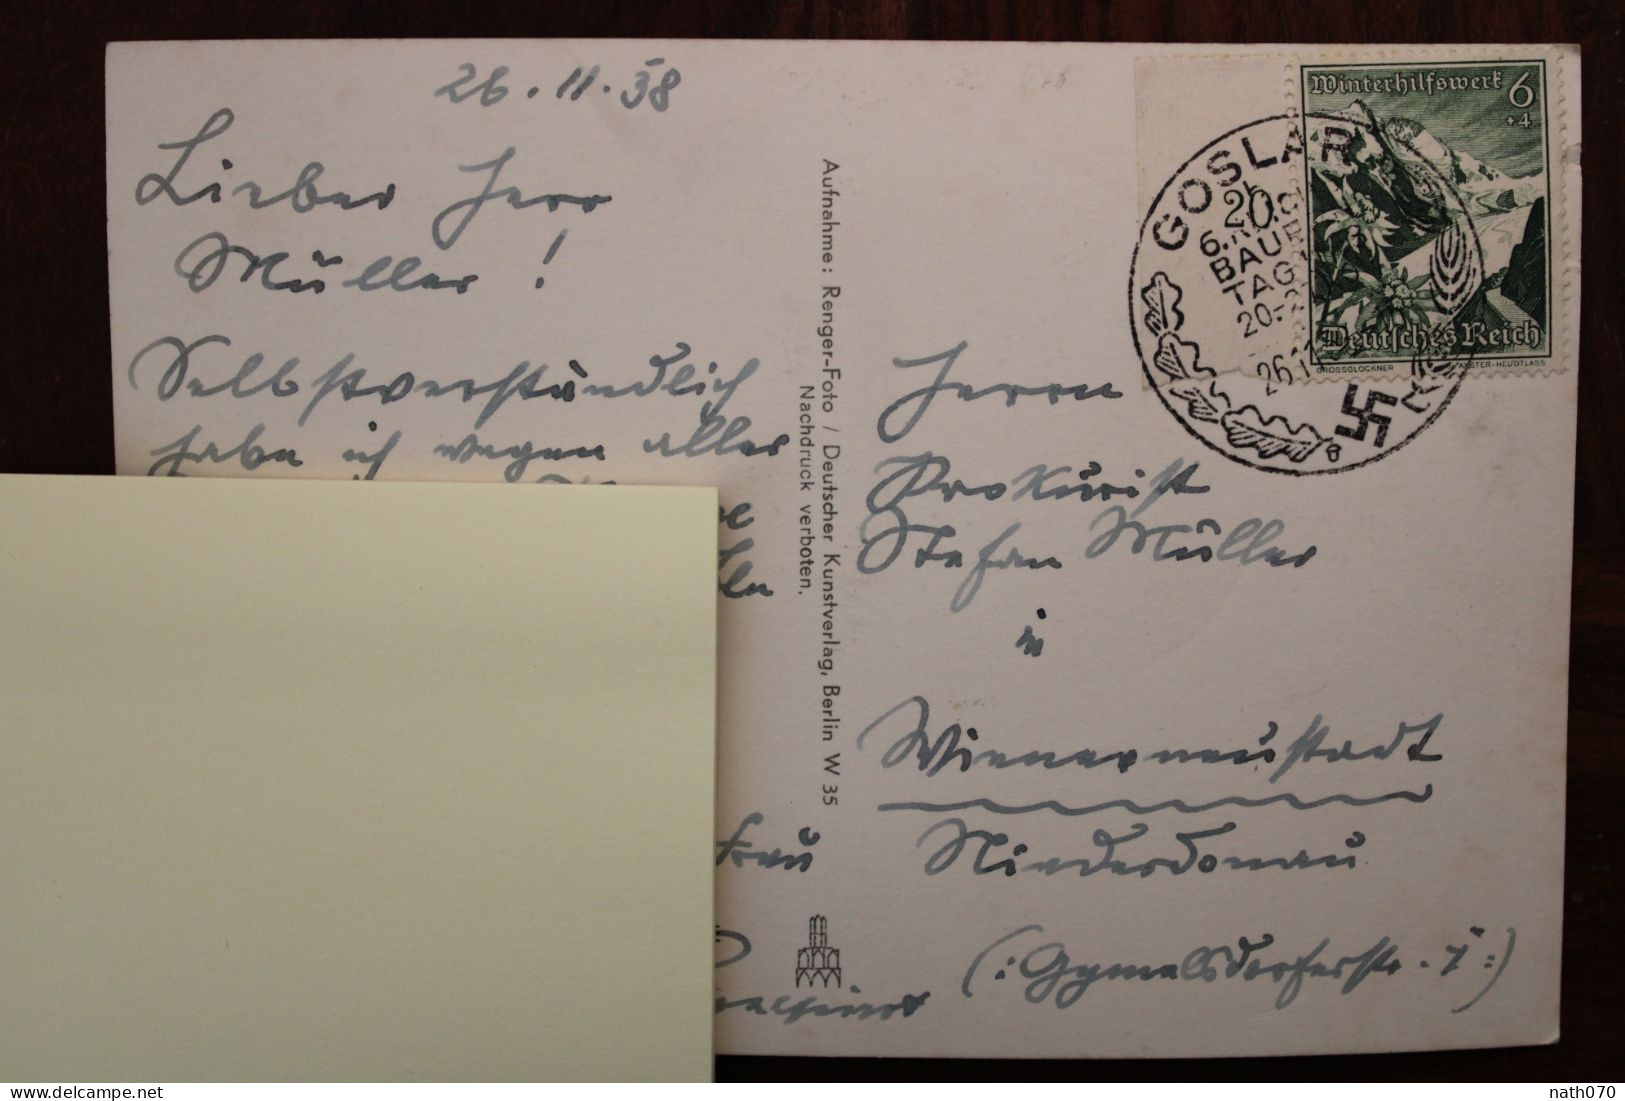 26.11.38
Lieber Herr
Müller!
Selbstverständlich
habe ich wegen aller
Frau
Aufnahme: Renger-Foto / Deutscher Kunstverlag, Berlin W 35
Nachdruck verboten.
Winterhilfswerk 6
+4
Deutsches Reich
GROSSGLOCKNER
GOSLAR
20.
6.
BAU
TAG
20.
26.11
Herrn
Prokurist
Stefan Müller
in
Wienerneustadt
Niederdonau
(: Gymelsdorferstr. 7 :)
nath070